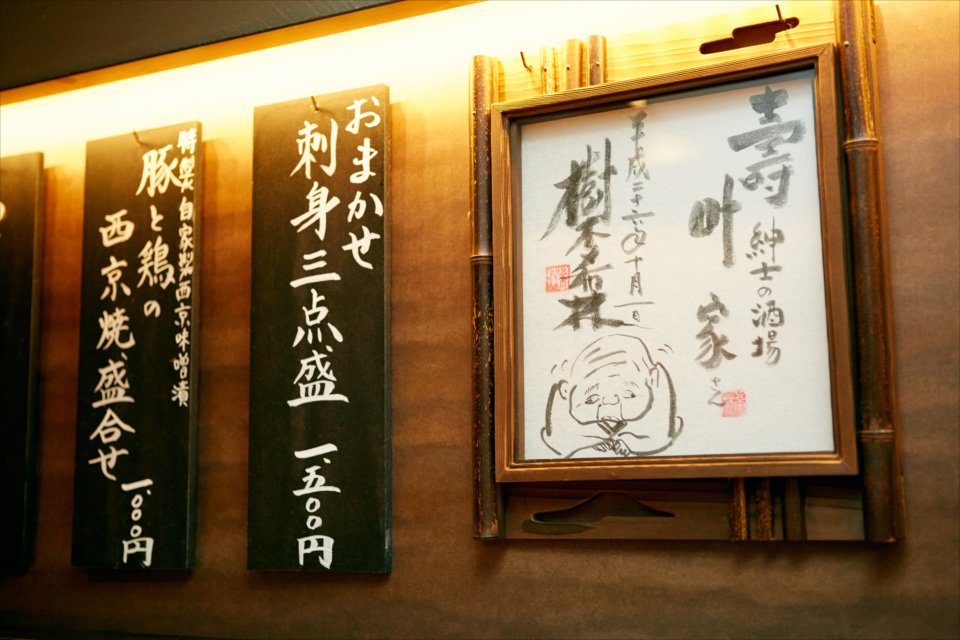 壽
叶
家さん
紳士の酒場
平成二十六年十月一日
樹木希林
おまかせ
刺身三点盛
一、五〇〇円
特製自家製西京味噌漬
豚と鶏の
西京焼盛合せ
一、〇〇〇円